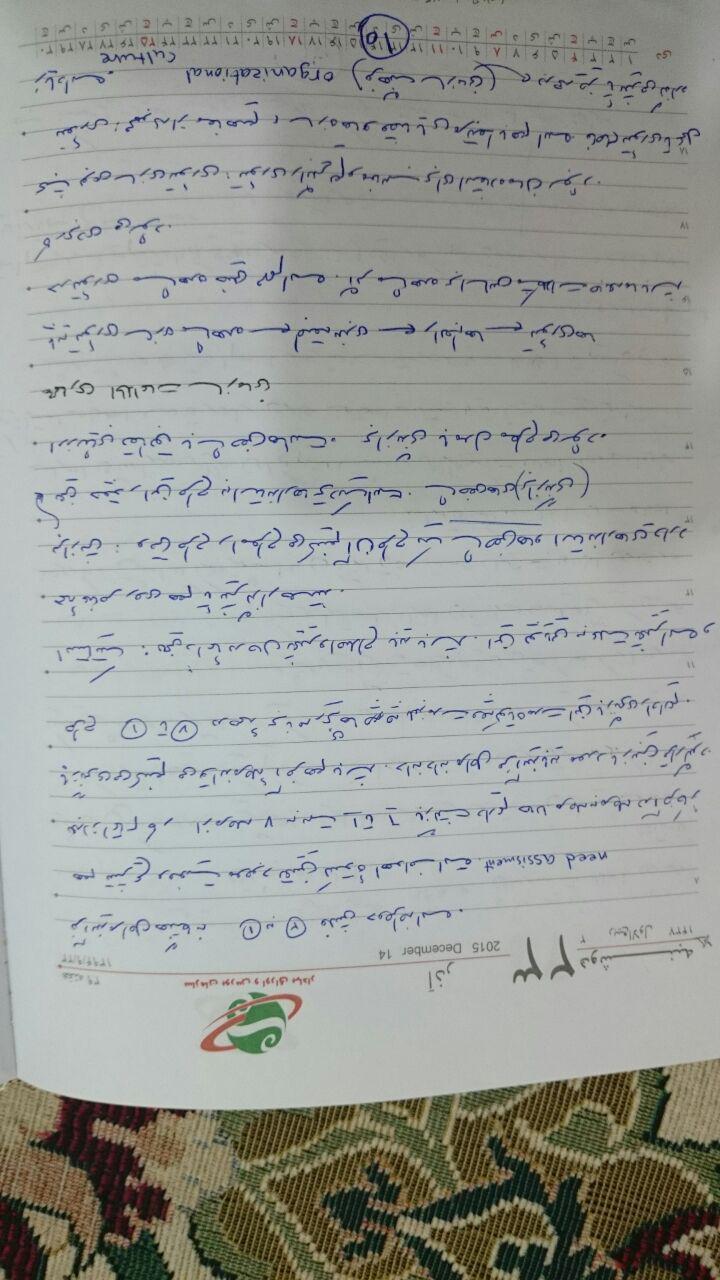 سازمان بورس و اوراق بهادار
هفته ۳۹
۱۳۹۴/۹/۲۳
آذر
۲۳ دوشنبه
2015 December 14
۲ ربیع‌الاول ۱۴۳۷
فرآیند مراحل هشتگانه ① به ② فلش دوطرفه است.
هم تشریح وضعیت موجود تعیین کنندهٔ اهداف است. need assisment
بعد از اتمام کار از مرحله ۷ به سمت ۱ تا ۶ بازگشت داریم حالا مرحله به مرحله در آخر کار
بازنگری می‌کنیم می‌تواند مرحلهٔ آخر هم باشد. دانه دانه مراحل فرآیند باید مورد بازبینی قرار گیرد.
طرح ① تا ⑦ در همهٔ برنامه ریزی‌ها چه بلند مدت و چه کوتاه مدت این بازنگری را داریم.
استاتیک : یعنی دائماً در حال تغییر و اصلاح باید باشد. این پویایی به علت تغییر است و
همهٔ عناصر روی هم تأثیر گذار هستند.
برازش : وقتی طرح را مطرح می‌کنیم آن طرح یک شاخص‌ها و استاندارهای دارد
یعنی چقدر این طرح به استاندارها نزدیک است. شاخص‌های (برازندگی)
ارزشیابی تطابق با شاخص‌هاست. برازندگی با مدل مطرح می‌شود.
معماری اطلاعات سازمانی
پایه تئوری سازی مشاهده ← طبقه بندی ← رابطه‌ها ← تئوری‌ها
در تئوری مشاهده خیلی مهم است. اگر مشاهده براساس مشکلات جامعه ما باشد
کاربردی می‌شود.
بحث بومی سازی تئوری : تئوری را بگیریم و مناسب برای استفاده‌مان بشود.
تئوری : مجموعه از مفاهیم ، سازه‌ها و قضایای مرتبط با هم است. فاصله تئوری تا عمل
زیاد است. organizational culture (فرهنگ سازمانی) ← در همه چیز تأثیر می‌گذارد
دی ۱ ۲ ۳ ۴ ۵ ۶ ۷ ۸ ۹ ۱۰ ۱۱ ۱۲ ۱۳ ۱۴ ۱۵ ۱۶ ۱۷ ۱۸ ۱۹ ۲۰ ۲۱ ۲۲ ۲۳ ۲۴ ۲۵ ۲۶ ۲۷ ۲۸ ۲۹ ۳۰
۱۵